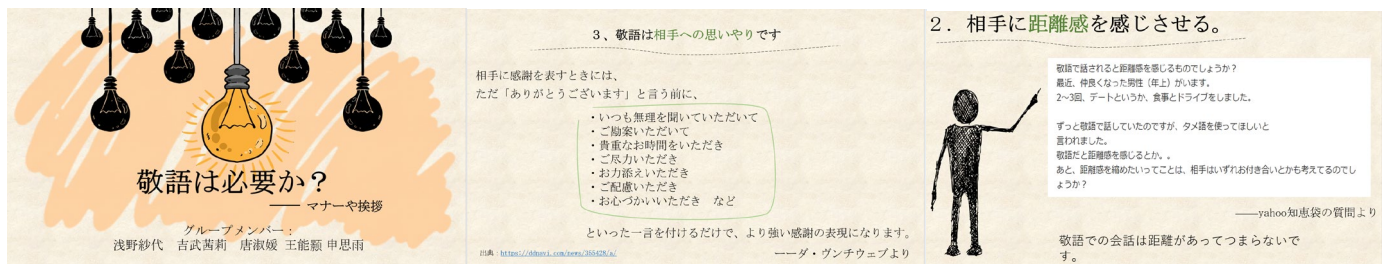 敬語は必要か?
—— マナーや挨拶
グループメンバー:
浅野紗代 吉武茜莉 唐淑媛 王能顥 申思雨
3、敬語は相手への思いやりです
相手に感謝を表すときには、
ただ「ありがとうございます」と言う前に、
・いつも無理を聞いていただいて
・ご勘案いただいて
・貴重なお時間をいただき
・ご尽力いただき
・お力添えいただき
・ご配慮いただき
・お心づかいいただき など
といった一言を付けるだけで、より強い感謝の表現になります。
出典:https://ddnavi.com/news/355428/a/
ーーダ・ヴンチウェブより
2. 相手に距離感を感じさせる。
敬語で話されると距離感を感じるものでしょうか?
最近、仲良くなった男性(年上)がいます。
2〜3回、デートというか、食事とドライブをしました。
ずっと敬語で話していたのですが、タメ語を使ってほしいと
言われました。
敬語だと距離感を感じるとか。。
あと、距離感を締めたいってことは、相手はいずれお付き合いとかも考えてるのでし
ょうか?
——yahoo知恵袋の質問より
敬語での会話は距離があってつまらないで
す。